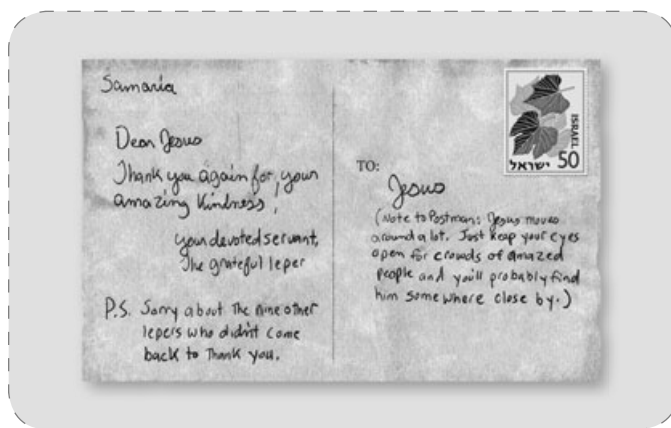 Samaria
Dear Jesus
Thank you again for your
amazing kindness,
your devoted servant,
The grateful leper
P.S. Sorry about the nine other
lepers who didn't come
back to thank you.
ISRAEL
ישראל 50
TO:
Jesus
(Note to Postman: Jesus moves
around a lot. Just keep your eyes
open for crowds of amazed
people and you'll probably find
him somewhere close by.)